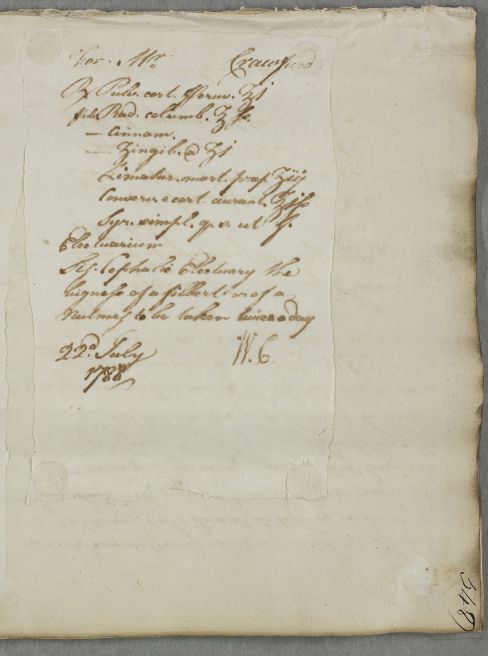 For Mr. Crawfurd
℞ Pulv. cort. Peruv. ℥j
Rad. columb. ℥ß.
— Cinnam.
— Zingib. a ʒj
Limatur. mart. ppt. ʒiij
Conserv. cort. aurant. ℥iß
Syr. simpl. q. s. ut f.
Electuarium
Sig. Cephalic Electuary the
bigness of a filbert or of a
Nutmeg to be taken twice a day
22d. July W. C.
1788
548